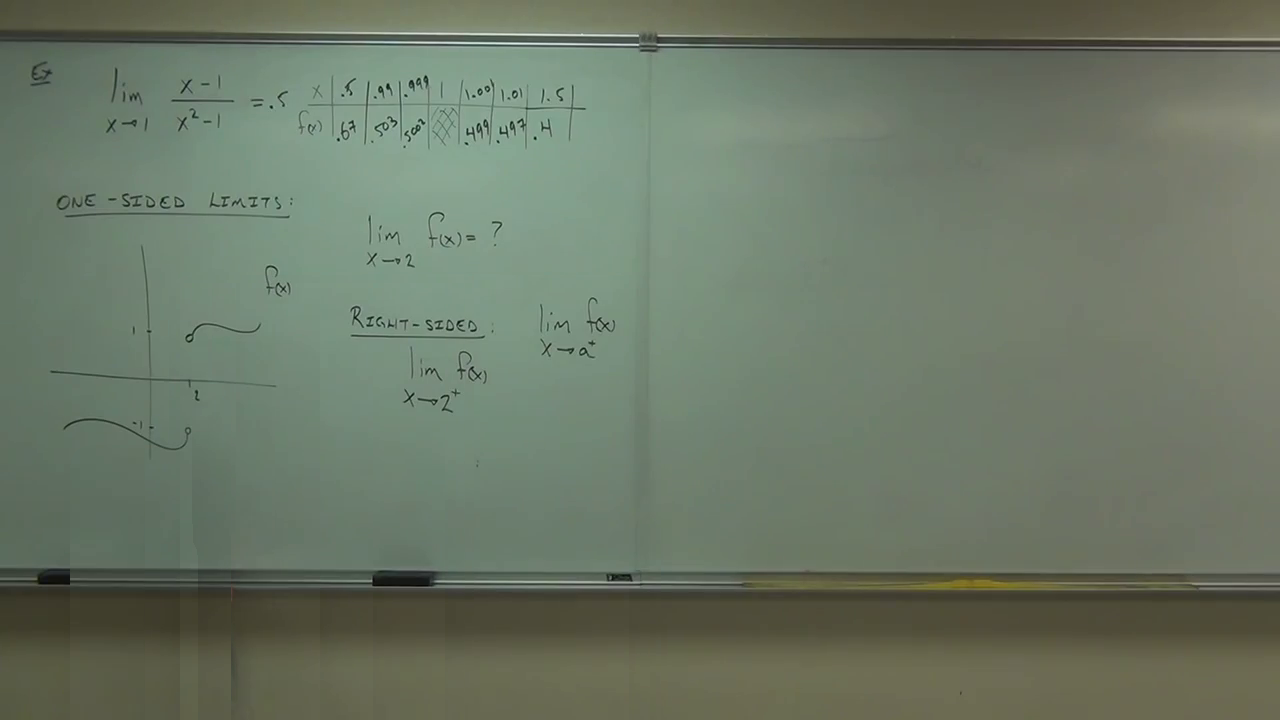 Ex lim x→1 x-1 / x²-1 = .5
x | .5 | .99 | .999 | 1 | 1.001 | 1.01 | 1.5
f(x) | .67 | .503 | .5002 | | .499 | .497 | .4
ONE-SIDED LIMITS:
lim x→2 f(x) = ?
f(x)
1
2
-1
RIGHT-SIDED: lim x→a⁺ f(x)
lim x→2⁺ f(x)